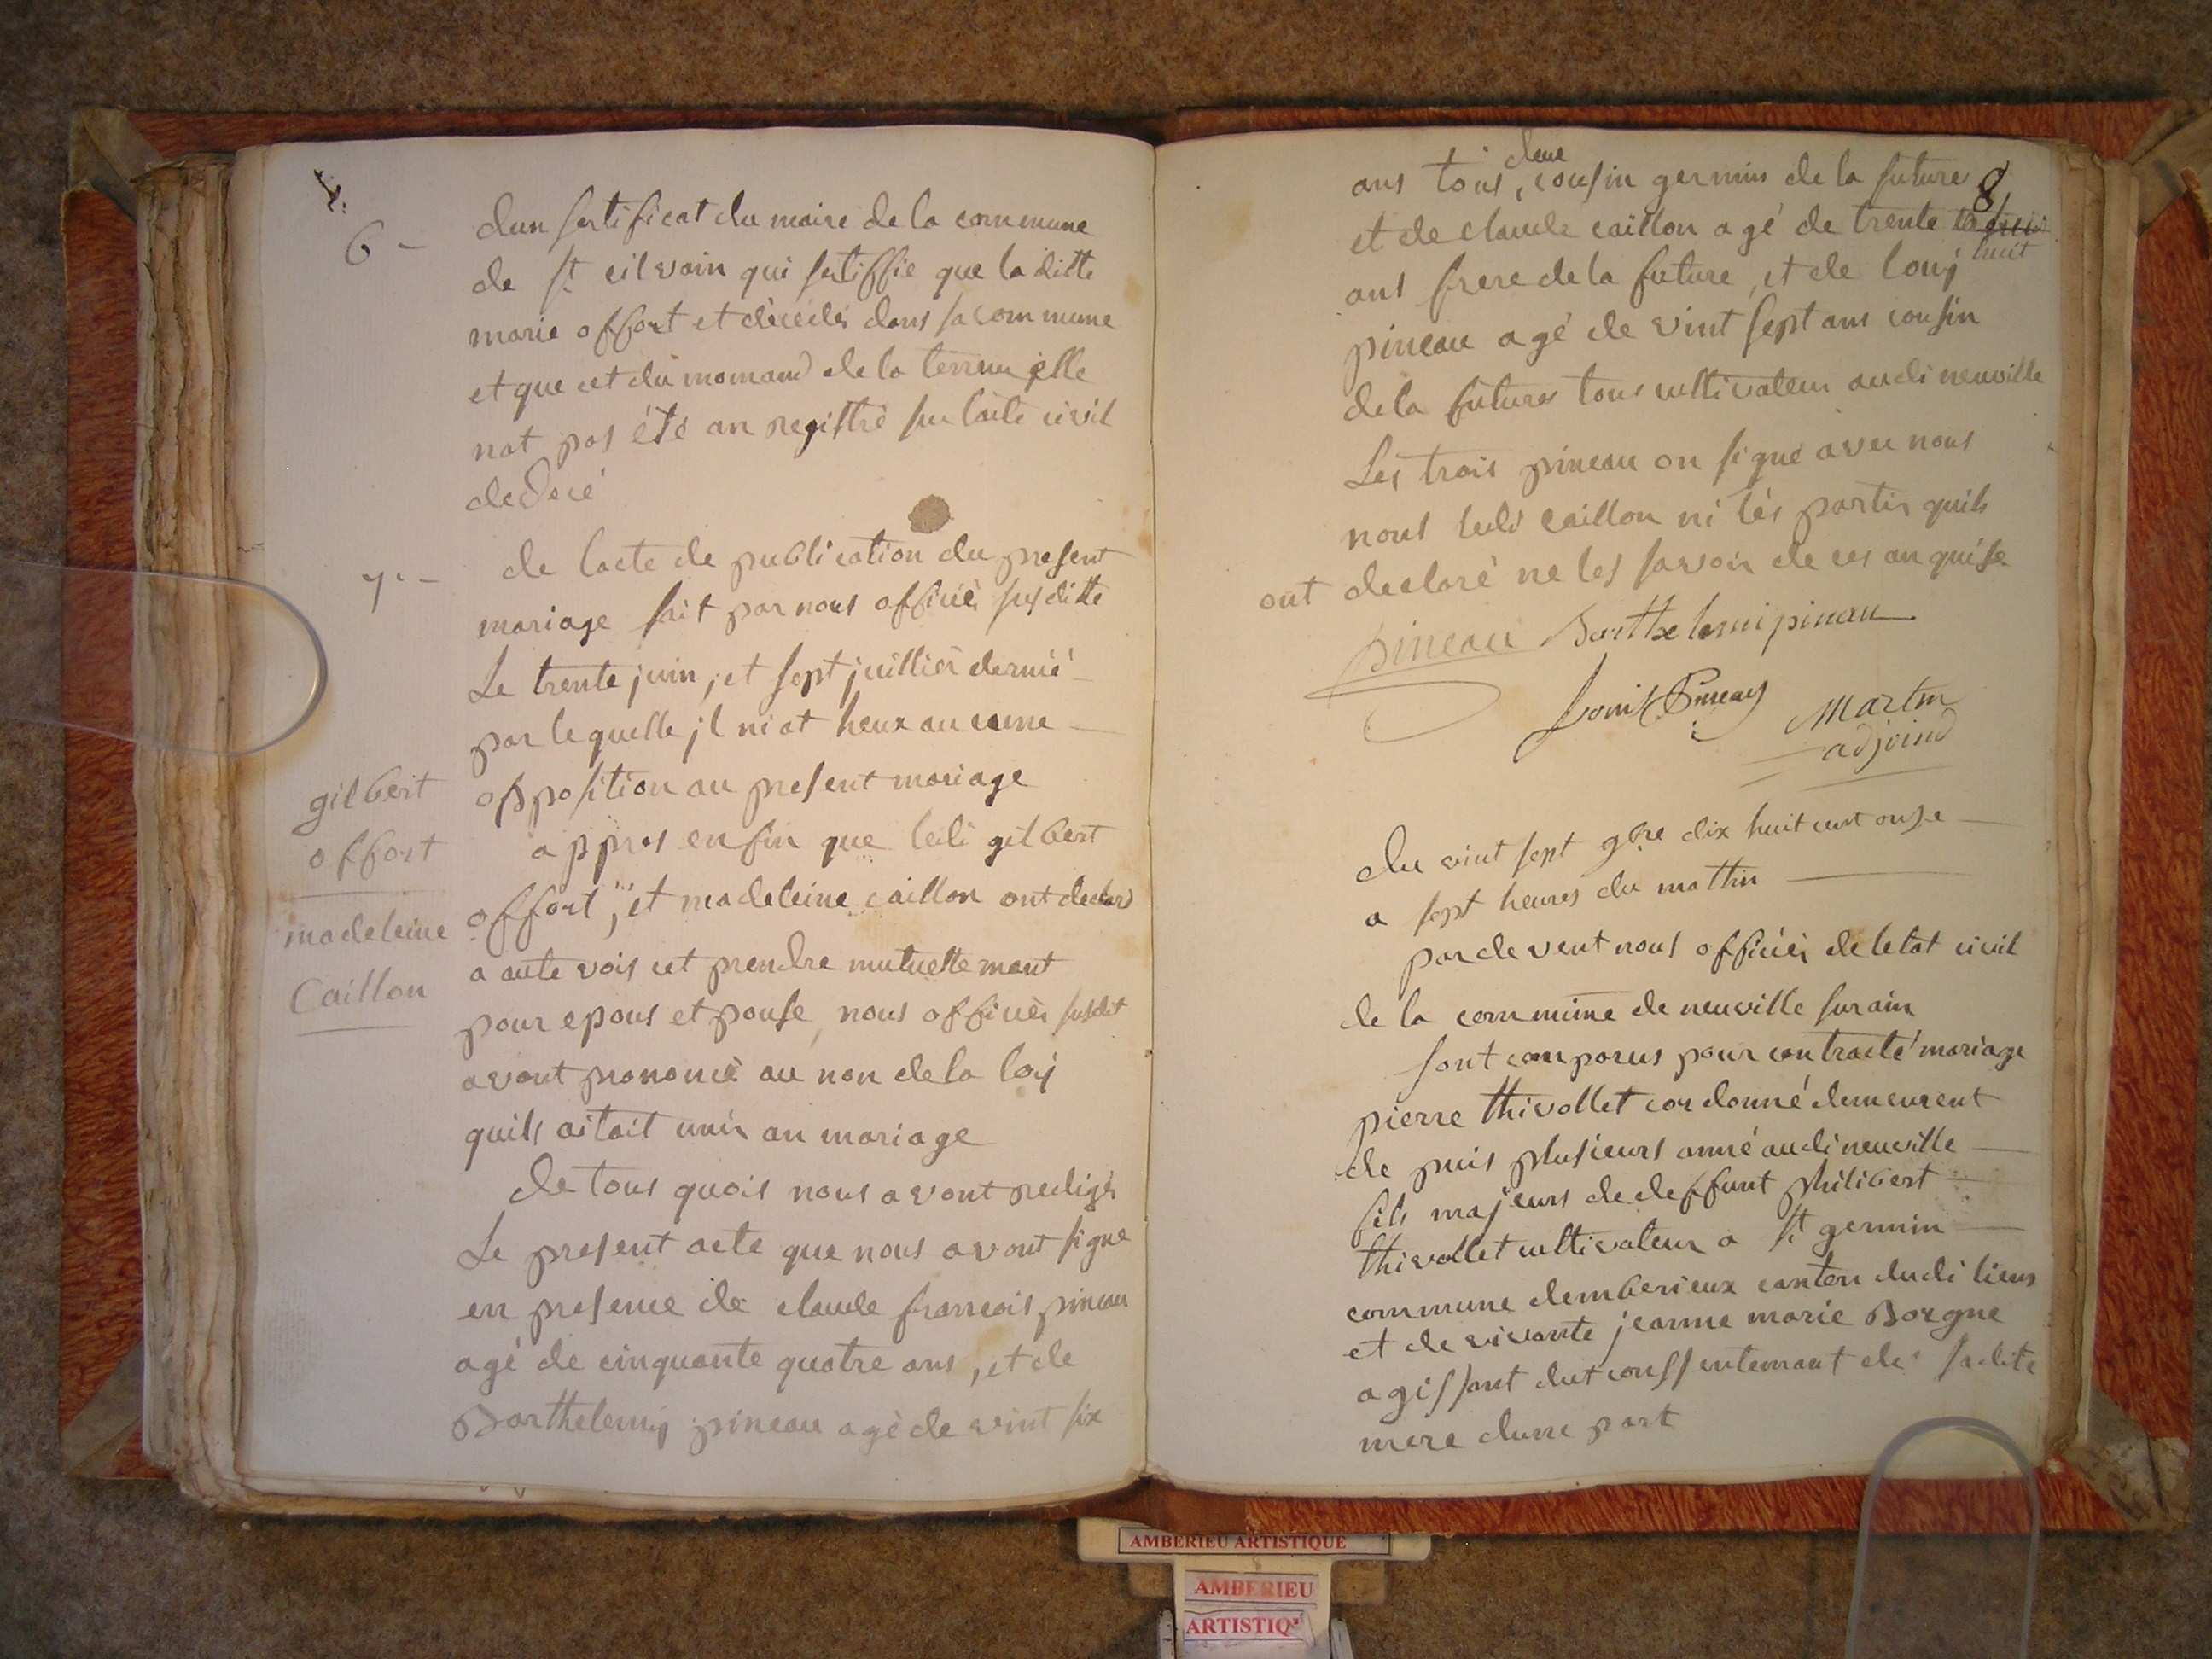 6 -
dun sertificat du maire de la commune
de st cilvain qui sertiffie que la ditte
marie offort et décédés dans sa commune
et que cet du momand de la terreur elle
nat pas été an registré sur laite civil
de
7. -
de lacte de publication du present
mariage fait par nous officiér susditte
Le trente juin, et sept juillier dernié
par le quelle jl ni at heux aucune
opposition au present mariage
gilbert
offort
madeleine
Caillon
appres enfin que ledi gilbert
offort, et madeleine caillon ont declaré
a aute vois cet prendre mutuellemant
pour epous et pouse, nous officièr susdit
avont prononcé au non de la loy
quils aitait unis an mariage
de tous quois nous avont redigés
Le present acte que nous avont signe
en presence de claude francois pineau
agé de cinquante quatre ans, et de
Barthelemy pineau agè de vint six
8
ans tous deux, cousin germins de la future
et de claude caillon agé de trente huit
ans frere de la future, et de louj
pineau agé de vint sept ans cousin
de la future tous cultivateur audi neuville
Les trois pineau on signé avec nous
nous ledi caillon ni lés partis quils
ont declaré ne les savoir de ces an quise
pineau Barthelemi pineau
Louis Pineau
Martin
adjoind
du vint sept 9bre dix huit cent onze
a sept heures du mattin
par de vent nous officiér de letat civil
de la commune de neuville surain
sont comparus pour contracté mariage
pierre thivollet cordonné demeurent
de puis plusieurs anné audi neuville
fils majeurs de deffunt philibert
thivollet cultivateur a st germin
commune demberieux canton dudi lieus
et de vivante jeanne marie Borgne
agissant dut conssentemant de sadite
mere dune part
AMBERIEU ARTISTIQUE
AMBERIEU
ARTISTIQ